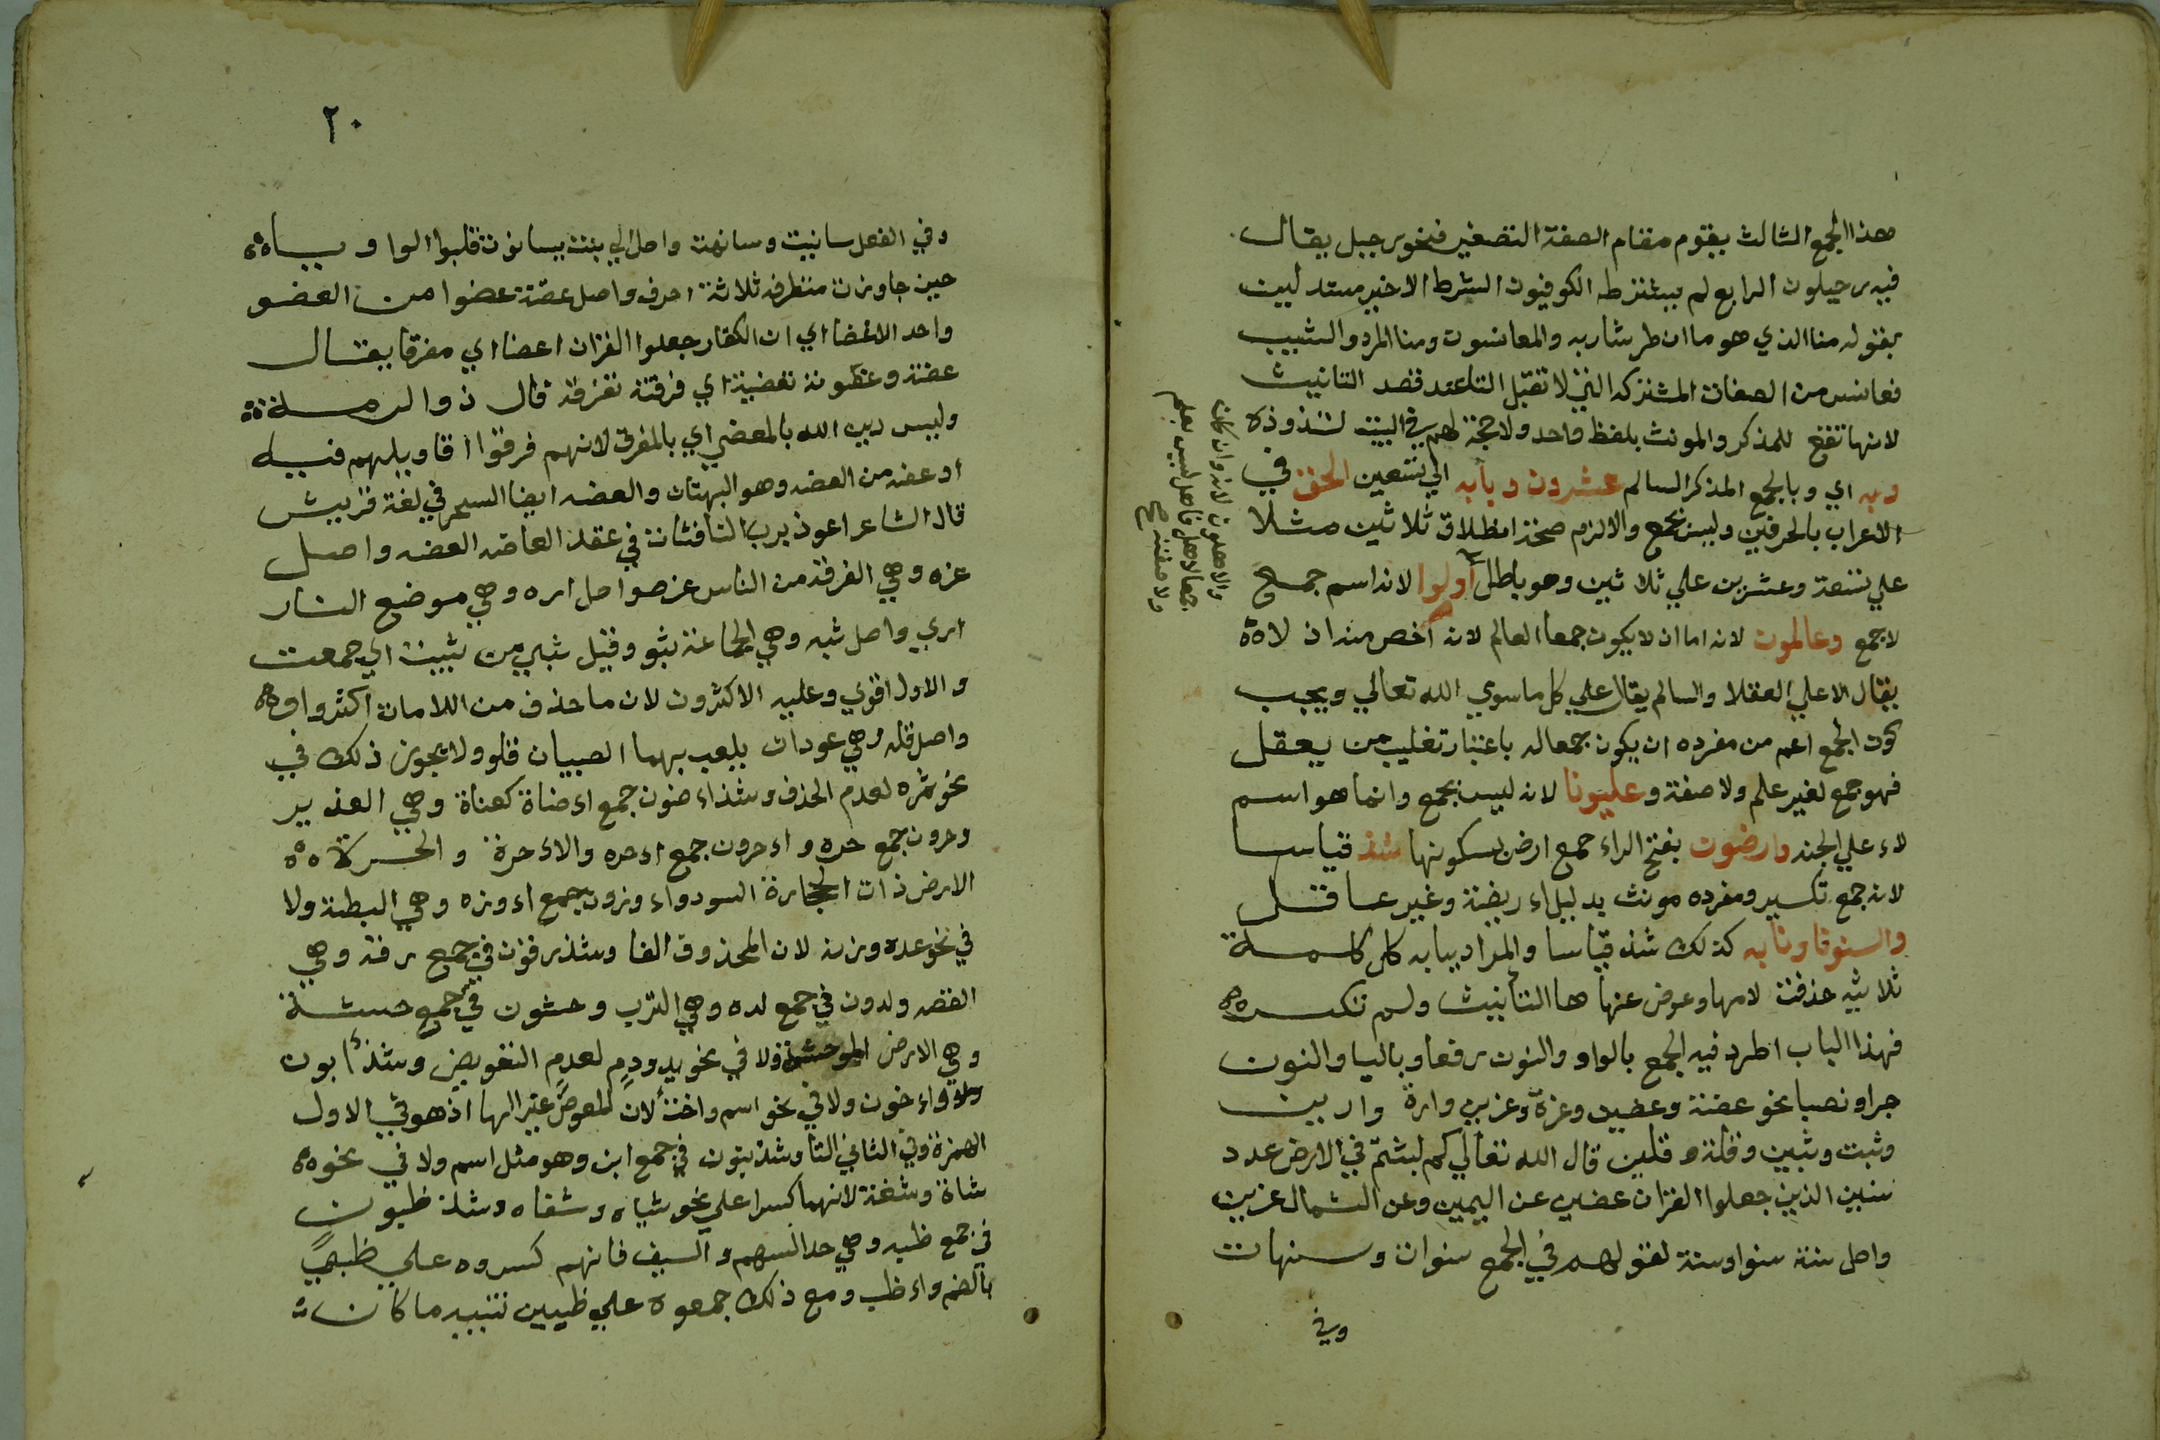 هذا الجمع الثالث يقوم مقام الصفة التصغير فنحو رجيل يقال
فيه رجيلون الرابع لم يشترط الكوفيون الشرط الاخير مستدلين
بقوله منا الذي هو ما ان طر شاربه والعانسون ومنا المرد والشيب
فعانس من الصفات المشتركه التي لا تقبل التا عند قصد التانيث
لانها تقع للمذكر والمونث بلفظ واحد ولا حجة لهم في البيت لشذوذه
وبه اي وبالجمع المذكر السالم عشرون وبابه الي تسعين الحق في
الاعراب بالحرفين وليس بجمع والا لزم صحة اطلاق ثلاثين مثلا
علي تسعة وعشرين علي ثلاثين وهو باطل أولوا لانه اسم جمع
لا جمع وعالمون لانه اما ان لا يكون جمعا لعالم لانه اخص منه اذ لا
يقال الا علي العقلا والعالم يقال علي كل ماسوي الله تعالي ويجب
كون الجمع اعم من مفرده ان يكون جمعا له باعتبار تغليب من يعقل
فهو جمع لغير علم ولا صفة وعليونا لانه ليس بجمع وانما هو اسم
لاعلي الجنه وارضون بفتح الراء جمع ارض بسكونها شذ قياسا
لانه جمع تكسير ومفرده مونث بدليل اريضة وغير عاقل
والسنونا وبابه كذلك شذ قياسا والمراد ببابه كل كلمة
ثلاثيه حذفت لامها وعوض عنها ها التأنيث ولم تكسر
فهذا الباب اطرد فيه الجمع بالواو والنون رفعا وباليا والنون
جرا ونصبا نحو عضة وعضين وعزة وعزين وارة وارين
وثبت وثبين وقلة وقلين قال الله تعالي كم لبثتم في الارض عدد
سنين الذين جعلوا القران عضين عن اليمين وعن الشمال عزين
واصل سنة سنو او سنه لقولهم في الجمع سنوات وسنهات
وفي
٢٠
وفي الفعل سانيت وسانهت واصل سانيت سانوت قلبوا الواو ياه
حين جاوزت متطرفه ثلاثة احرف واصل عضة عضوا من العضو
واحد الاعضا اي ان الكفار جعلوا القران اعضا اي مفرقا يقال
عضته وعضوته تعضية اي فرقته تفرقة قال ذوالرمة
وليس دين الله بالمعضي اي بالمفرق لانهم فرقوا اقاويلهم فيه
او عضه من العضه وهو البهتان والعضه ايضا السحر في لغة قريش
قال الشاعر اعوذ بربي النافثات في عقد العاضه العضه واصل
عزه وهي الفرقة من الناس عزو واصل اره وهي موضع النار
اري واصل ثبه وهي الجماعة ثبو وقيل ثبي من ثبيت اي جمعت
والاول اقوي وعليه الاكثرون لان ما حذف من اللامات اكثر واو
واصل قله وهي عودان يلعب بهما الصبيان قلو ولا يجوز ذلك في
نحو ثمره لعدم الحذف وشذ اضون جمع اضاة كقناة وهي الغدير
وحرون جمع حره واحرون جمع احره والاحرة والحرة
الارض ذات الحجارة السوداء وزون جمع اوزه وهي البطة ولا
في نحو عده وزنة لان المحذوف الفا وشذ رقون في جمع رقة وهي
الفضه ولدون في جمع لده وهي الترب وحشون في جمع حشة
وهي الارض الموحشة ولا في نحو يد ودم لعدم التعويض وشذ أبون
واخون ولا في نحو اسم واخت لان المعوض غير الها اذ هو في الاول
الهمزة وفي الثاني التا وشذ بنون في جمع ابن وهو مثل اسم ولا في نحو
شاة وشفة لانهما كسرا علي نحو شياه وشفاه وشذ ظبون
في جمع ظبه وهي حد السهم والسيف فانهم كسروه علي ظبي
بالضم واظب ومع ذلك جمعوه علي ظبيين تنبيه ما كان